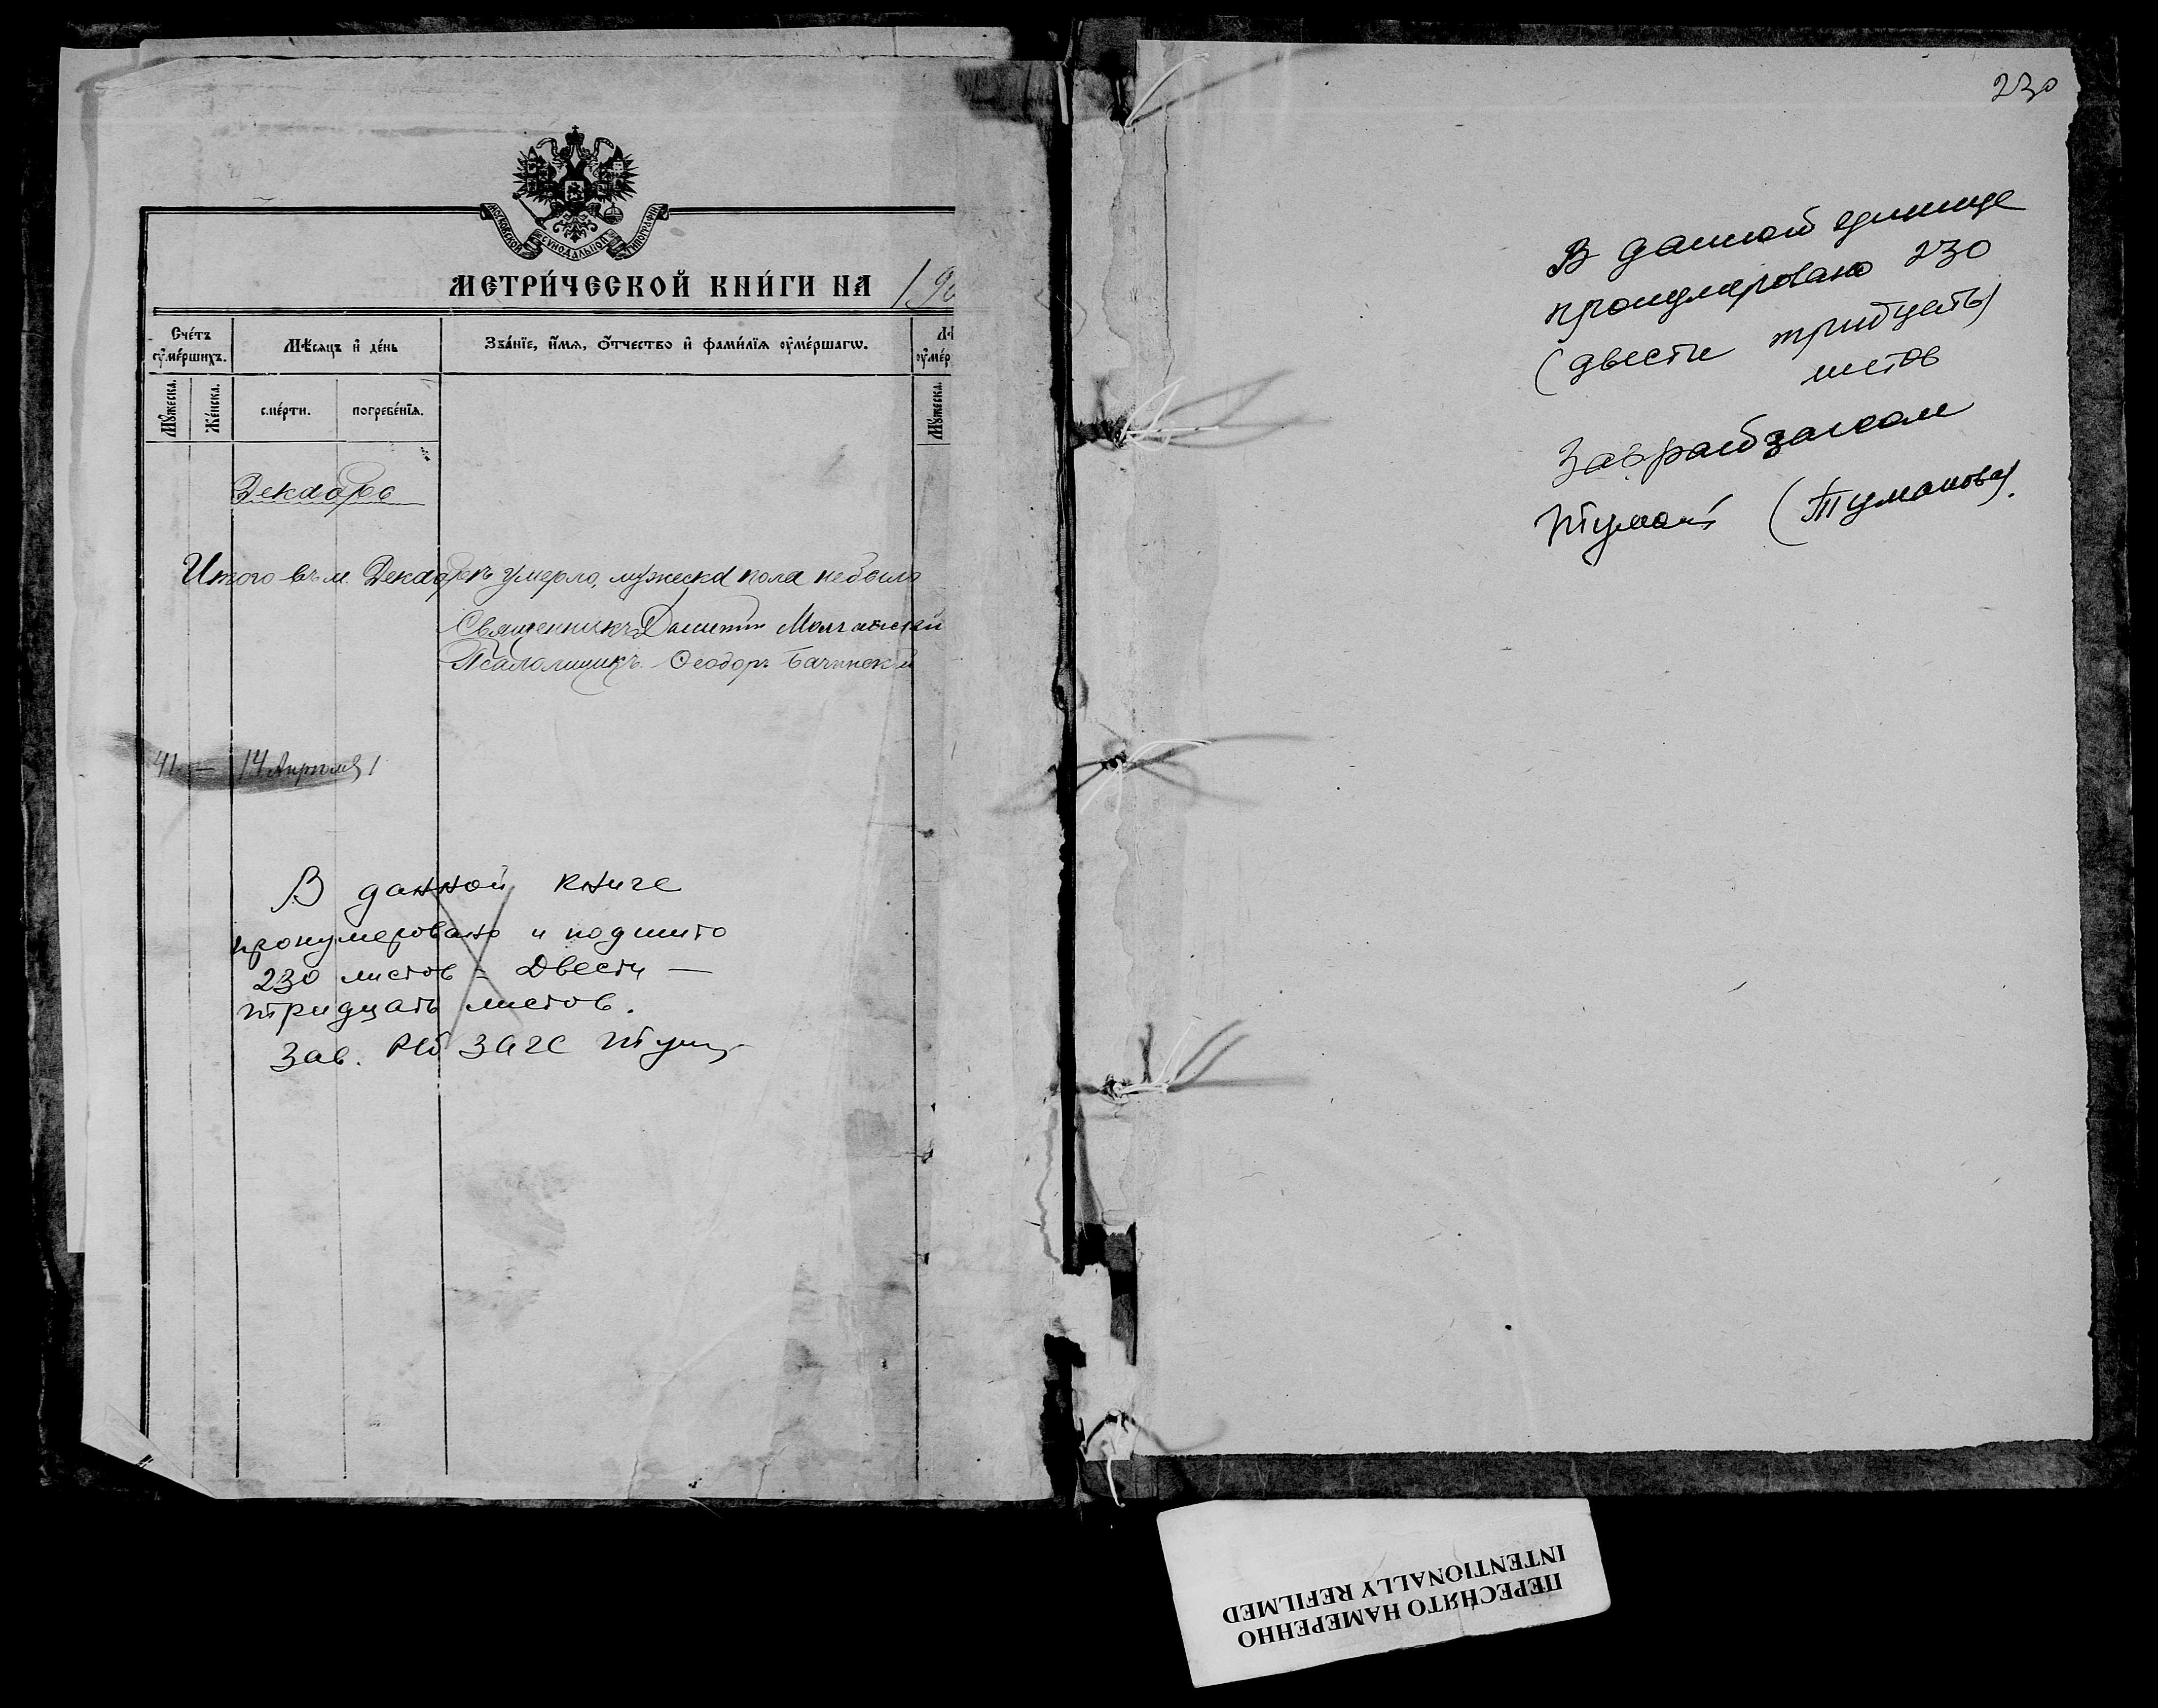 МОСКОВСКОЙ СУНОДАЛЬНОЙ ТИПОГРАФІИ
МЕТРИ́ЧЕСКОЙ КНИ́ГИ НА 190
Сче́тъ ᲂу҆ме́ршихъ.
Мѣ́сяцъ и҆ де́нь
Зва́нїе, и҆́мѧ, ѻ҆́тчество и҆ фами́лїѧ ᲂу҆ме́ршагѡ.
Мꙋ́жеска.
Же́нска.
сме́рти.
погребе́нїѧ.
Мꙋ́жеска.
Декабрь
Итого въ м. Декабрѣ умерло, мужеска пола не было
Священникъ Молчанскій
Псаломщикъ Ѳеодоръ Бачинскій
41 — 14 Апрѣля 1
В данной книге
пронумеровано и подшито
230 листов – Двести —
тридцать листов.
Зав. РБ ЗАГС
230
В данной единице
пронумеровано 230
(двести тридцать)
листов
Завраб загсом
Туман (Туманова).
ПЕРЕСНЯТО НАМЕРЕННО
INTENTIONALLY REFILMED